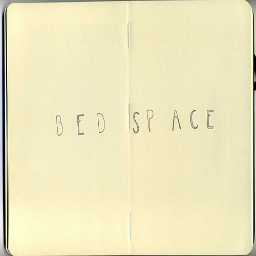 BED SPACE